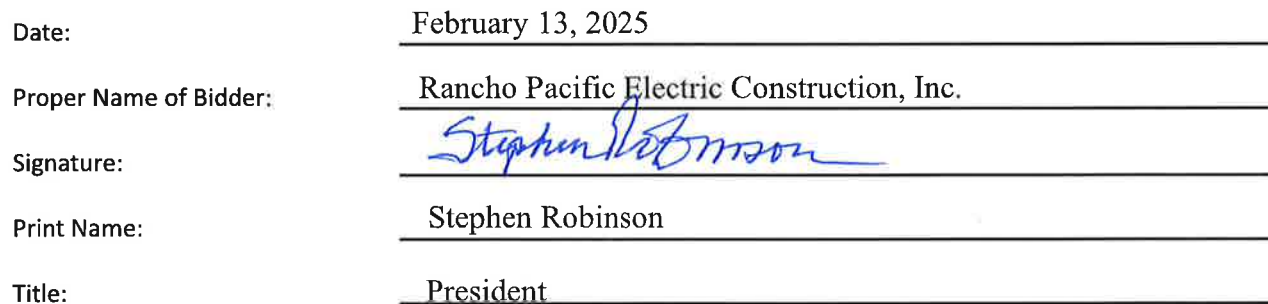 Date: February 13, 2025
Proper Name of Bidder: Rancho Pacific Electric Construction, Inc.
Signature: Stephen Robinson
Print Name: Stephen Robinson
Title: President